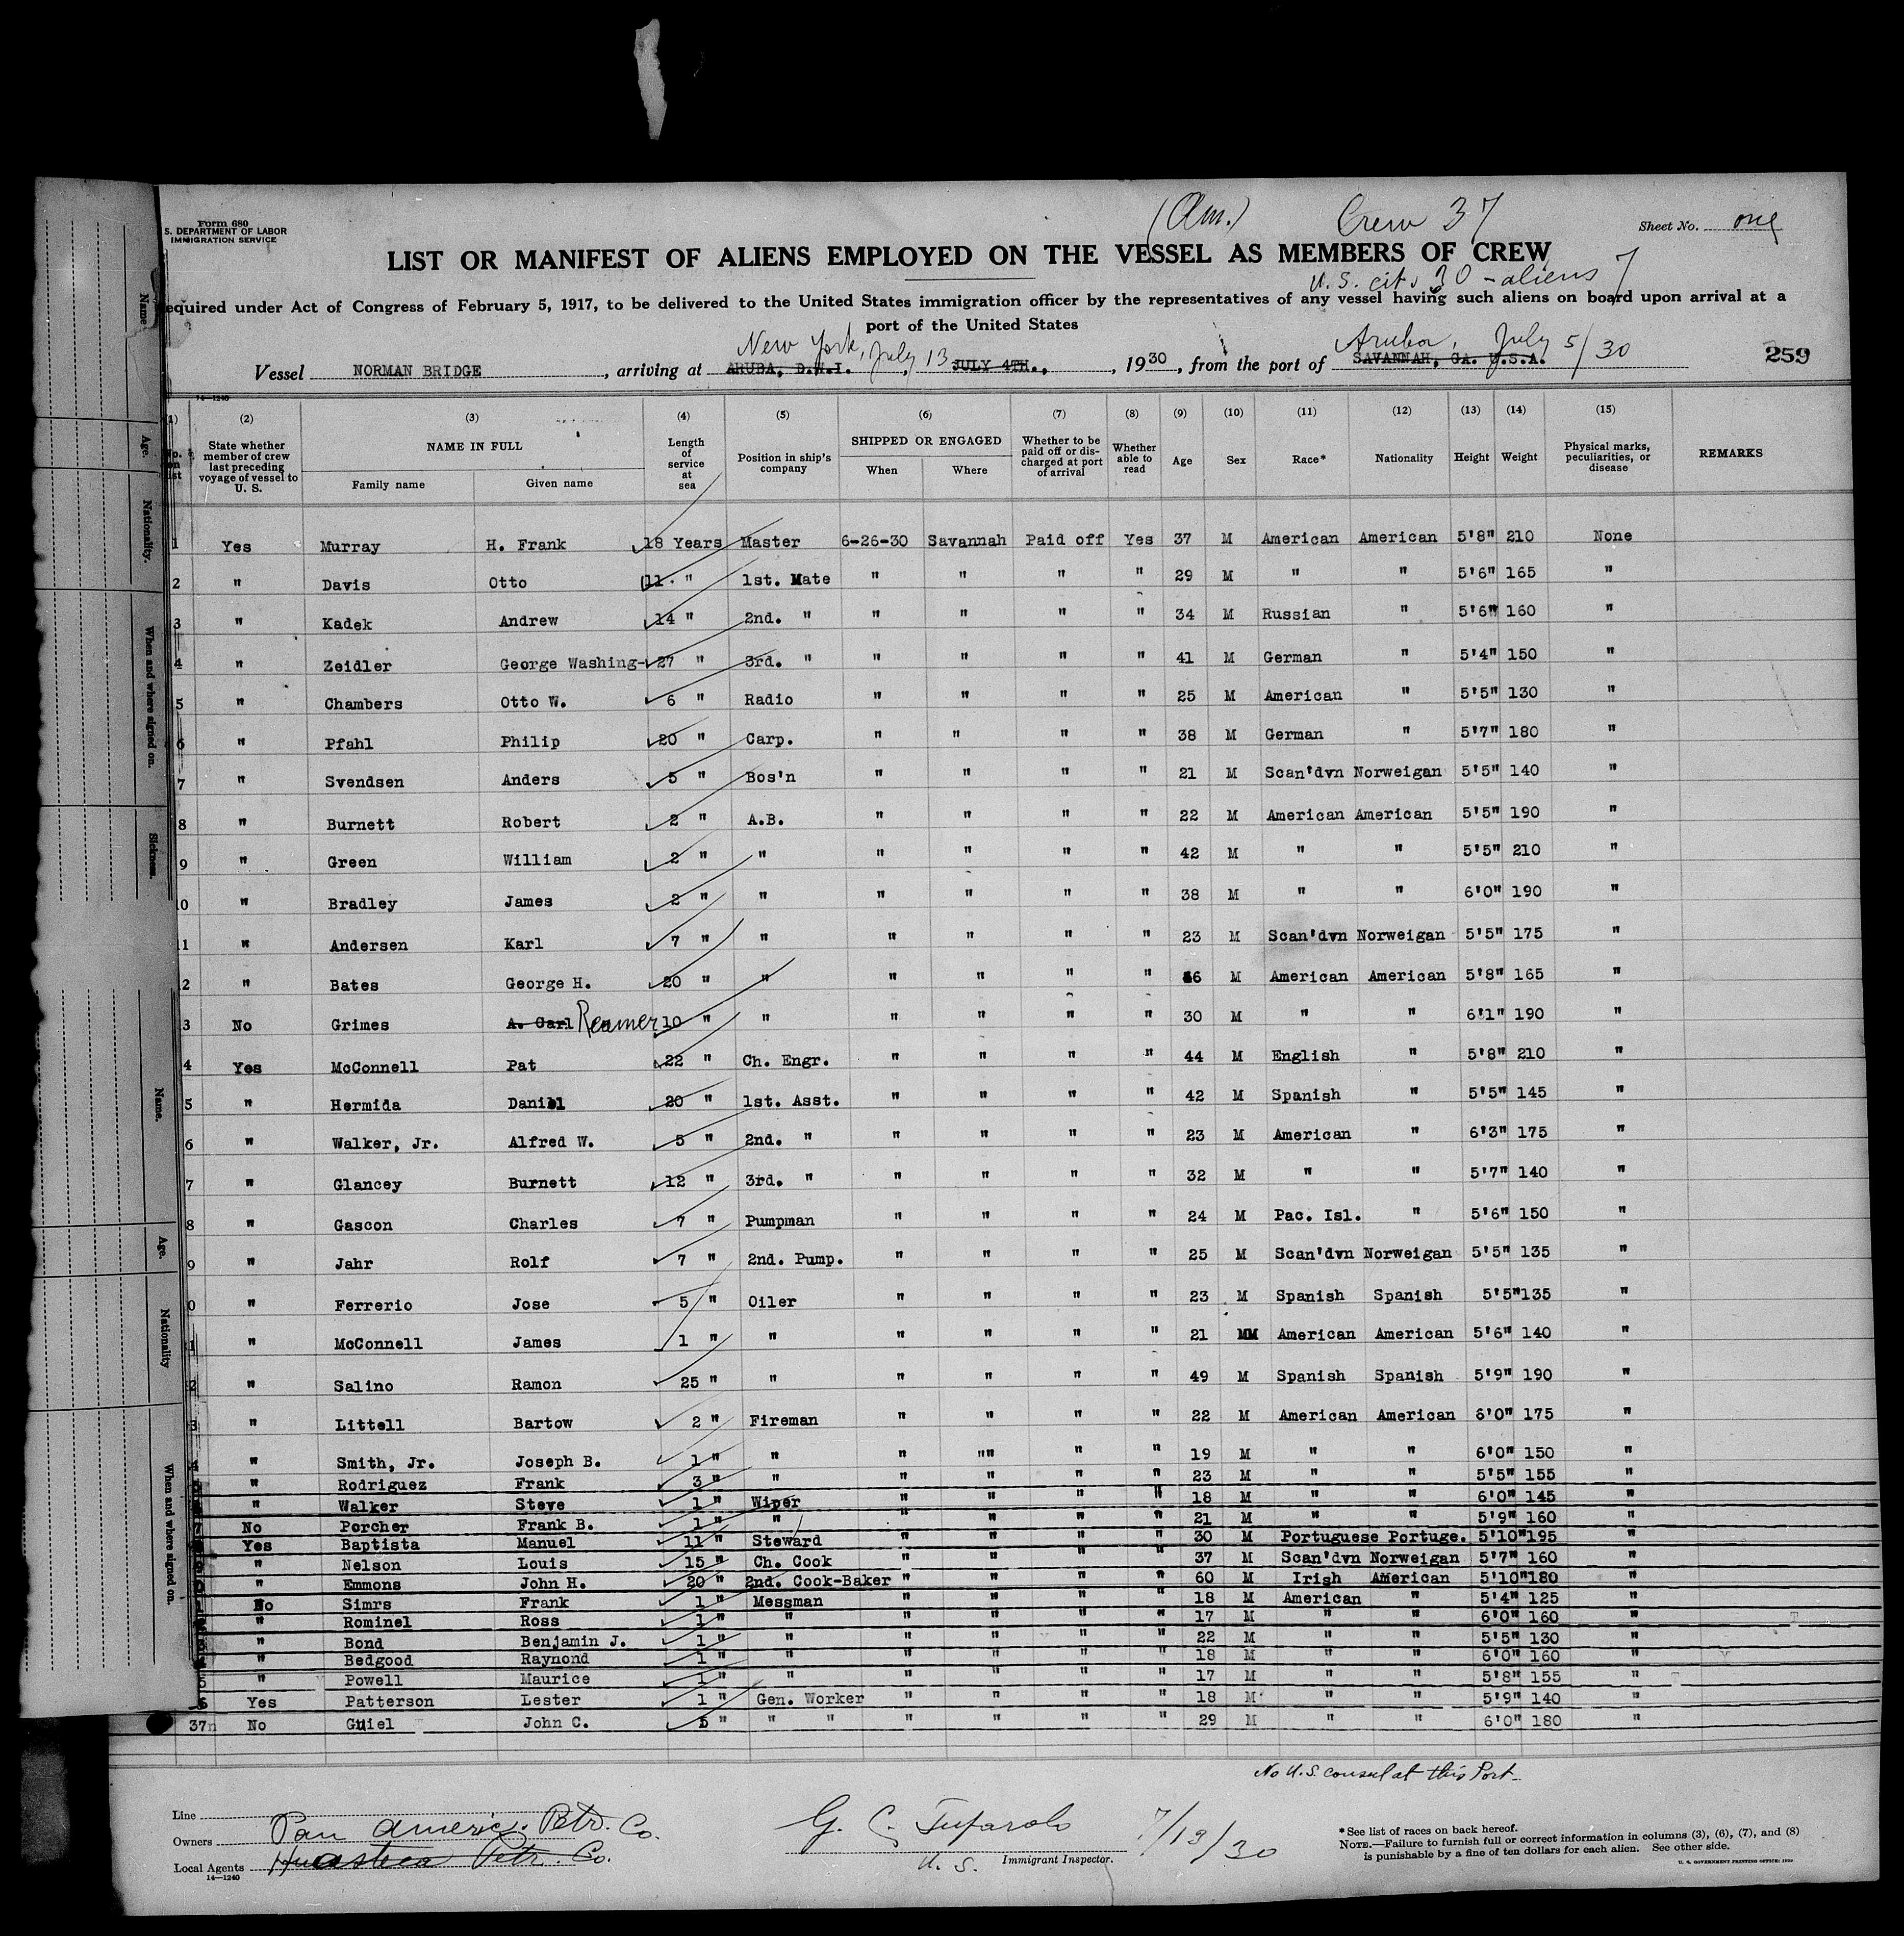 (Am.) Crew 37
Form 680
S. DEPARTMENT OF LABOR
IMMIGRATION SERVICE
Sheet No. one
LIST OR MANIFEST OF ALIENS EMPLOYED ON THE VESSEL AS MEMBERS OF CREW
U.S. cit. 30 - aliens 7
equired under Act of Congress of February 5, 1917, to be delivered to the United States immigration officer by the representatives of any vessel having such aliens on board upon arrival at a
port of the United States
New York, July 13 Aruba, July 5/30
Vessel NORMAN BRIDGE, arriving at ARUBA, D.W.I., JULY 4TH., 1930, from the port of SAVANNAH, GA. U.S.A. 259
14—1240
(1) (2) (3) (4) (5) (6) (7) (8) (9) (10) (11) (12) (13) (14) (15)
State whether member of crew last preceding voyage of vessel to U. S. NAME IN FULL Family name Given name Length of service at sea Position in ship's company SHIPPED OR ENGAGED When Where Whether to be paid off or discharged at port of arrival Whether able to read Age Sex Race* Nationality Height Weight Physical marks, peculiarities, or disease REMARKS
1 Yes Murray H. Frank 18 Years Master 6-26-30 Savannah Paid off Yes 37 M American American 5'8" 210 None
2 " Davis Otto 11 " 1st. Mate " " " " 29 M " " 5'6" 165 "
3 " Kadek Andrew 14 " 2nd. " " " " " 34 M Russian " 5'6" 160 "
4 " Zeidler George Washing- 27 " 3rd. " " " " " 41 M German " 5'4" 150 "
5 " Chambers Otto W. 6 " Radio " " " " 25 M American " 5'5" 130 "
6 " Pfahl Philip 20 " Carp. " " " " 38 M German " 5'7" 180 "
7 " Svendsen Anders 5 " Bos'n " " " " 21 M Scan'dvn Norweigan 5'5" 140 "
8 " Burnett Robert 2 " A.B. " " " " 22 M American American 5'5" 190 "
9 " Green William 2 " " " " " " 42 M " " 5'5" 210 "
0 " Bradley James 2 " " " " " " 38 M " " 6'0" 190 "
1 " Andersen Karl 7 " " " " " " 23 M Scan'dvn Norweigan 5'5" 175 "
2 " Bates George H. 20 " " " " " " 6 M American American 5'8" 165 "
3 No Grimes A. Carl Reamer 10 " " " " " " 30 M " " 6'1" 190 "
4 Yes McConnell Pat 22 " Ch. Engr. " " " " 44 M English " 5'8" 210 "
5 " Hermida Daniel 20 " 1st. Asst. " " " " 42 M Spanish " 5'5" 145 "
6 " Walker, Jr. Alfred W. 5 " 2nd. " " " " " 23 M American " 6'3" 175 "
7 " Glancey Burnett 12 " 3rd. " " " " " 32 M " " 5'7" 140 "
8 " Gascon Charles 7 " Pumpman " " " " 24 M Pac. Isl. " 5'6" 150 "
9 " Jahr Rolf 7 " 2nd. Pump. " " " " 25 M Scan'dvn Norweigan 5'5" 135 "
0 " Ferrerio Jose 5 " Oiler " " " " 23 M Spanish Spanish 5'5"135 "
1 " McConnell James 1 " " " " " " 21 MM American American 5'6" 140 "
2 " Salino Ramon 25 " " " " " " 49 M Spanish Spanish 5'9" 190 "
3 " Littell Bartow 2 " Fireman " " " " 22 M American American 6'0" 175 "
" Smith, Jr. Joseph B. 1 " " " "" " " 19 M " " 6'0" 150 "
" Rodriguez Frank 3 " " " " " " 23 M " " 5'5" 155 "
" Walker Steve 1 " Wiper " " " " 18 M " " 6'0" 145 "
7 No Porcher Frank B. 1 " " " " " " 21 M " " 5'9" 160 "
Yes Baptista Manuel 11 " Steward " " " " 30 M Portuguese Portuge. 5'10"195 "
" Nelson Louis 15 " Ch. Cook " " " " 37 M Scan'dvn Norweigan 5'7" 160 "
" Emmons John H. 20 " 2nd. Cook-Baker " " " " 60 M Irish American 5'10"180 "
No Simrs Frank 1 " Messman " " " " 18 M American " 5'4" 125 "
" Rominel Ross 1 " " " " " " 17 M " " 6'0" 160 "
" Bond Benjamin J. 1 " " " " " " 22 M " " 5'5" 130 "
" Bedgood Raynond 1 " " " " " " 18 M " " 6'0" 160 "
5 " Powell Maurice 1 " " " " " " 17 M " " 5'8" 155 "
6 Yes Patterson Lester 1 " Gen. Worker " " " " 18 M " " 5'9" 140 "
37 No Guiel John C. 5 " " " " " " " 29 M " " 6'0" 180 "
No U.S. consul at this Port
Line
Owners Pan Americ. Petr. Co.
Local Agents Huasteca Petr. Co.
14—1240
G. C. Tufarolo 7/13/30
U. S. Immigrant Inspector.
* See list of races on back hereof.
NOTE.—Failure to furnish full or correct information in columns (3), (6), (7), and (8)
is punishable by a fine of ten dollars for each alien. See other side.
U. S. GOVERNMENT PRINTING OFFICE: 1929
Name
Age.
Nationality.
When and where signed on.
Sickness.
Name.
Age.
Nationality
When and where signed on.